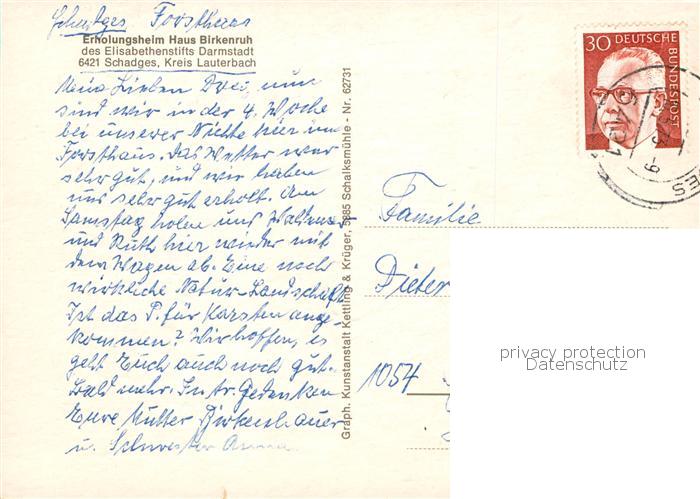 Schadges Forsthaus
Erholungsheim Haus Birkenruh
des Elisabethenstifts Darmstadt
6421 Schadges, Kreis Lauterbach
Meine Lieben Drei, nun
sind wir in der 4. Woche
bei unserer Nichte hier im
Forsthaus. Das Wetter war
sehr gut, und wir haben
uns sehr gut erholt. Am
Samstag holen uns
und Ruth hier wieder mit
dem Wagen ab. Eine noch
wirkliche Natur-Landschaft.
Ist das P. für Karsten ange-
kommen? Wir hoffen, es
geht Euch auch noch gut.
Bald mehr. In tr. Gedenken
Eure Mutter Birkenhauer
u. Schwester Anna
Graph. Kunstanstalt Kettling & Krüger, 5885 Schalksmühle - Nr. 62731
30 DEUTSCHE BUNDESPOST
6421
Familie
Dieter
1054
privacy protection
Datenschutz